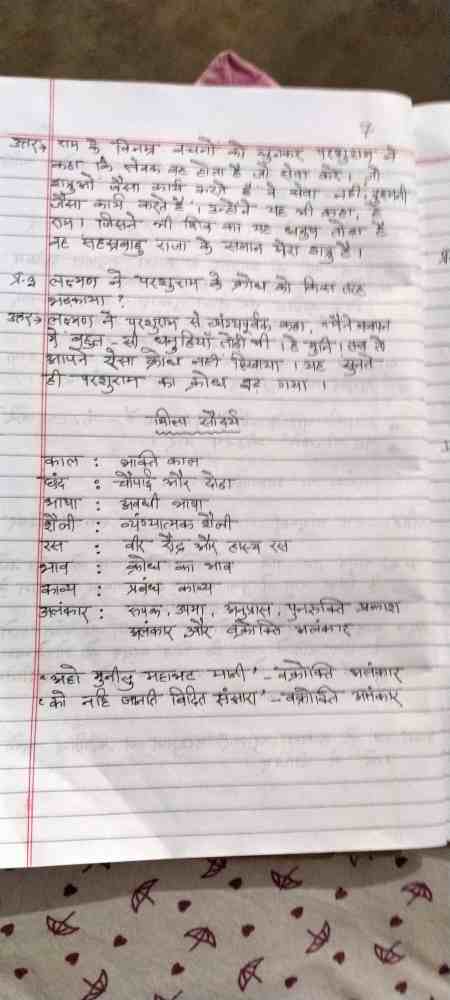 7
उत्तर→ राम के विनम्र वचनों को सुनकर परशुराम ने
कहा कि सेवक वह होता है जो सेवा करे। जो
शत्रुओं जैसा कार्य करते है वे सेवा नहीं, दुश्मनी
जैसा कार्य करते है। उन्होंने यह भी कहा, हे
राम। जिसने भी शिव का यह धनुष तोड़ा है
वह सहस्त्रबाहु राजा के समान मेरा शत्रु है।
प्र-2 लक्ष्मण ने परशुराम के क्रोध को किस तरह
भड़काया ?
उत्तर→ लक्ष्मण ने परशुराम से व्यंग्यपूर्वक कहा, "मैंने बचपन
में बहुत-सी धनुहियाँ तोड़ी थी। हे मुनि। तब तो
आपने ऐसा क्रोध नहीं दिखाया। यह सुनते
ही परशुराम का क्रोध बढ़ गया।
शिल्प सौंदर्य
काल : भक्ति काल
छंद : चौपाई और दोहा
भाषा : अवधी भाषा
शैली : व्यंग्यात्मक शैली
रस : वीर रौद्र और हास्य रस
भाव : क्रोध का भाव
काव्य : प्रबंध काव्य
अलंकार : रूपक, उपमा, अनुप्रास, पुनरुक्ति प्रकाश
अलंकार और वक्रोक्ति अलंकार
'अहो मुनीसु महाभट मानी' - वक्रोक्ति अलंकार
'को नहि जानति विदित संसारा' - वक्रोक्ति अलंकार